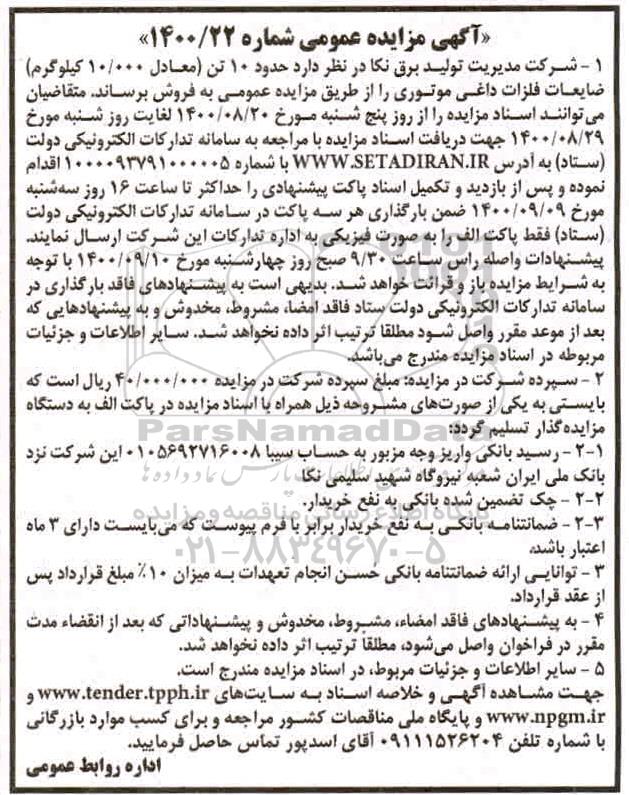 «آگهی مزایده عمومی شماره ۱۴۰۰/۲۲»
۱ - شرکت مدیریت تولید برق نکا در نظر دارد حدود ۱۰ تن (معادل ۱۰/۰۰۰ کیلوگرم)
ضایعات فلزات داغی موتوری را از طریق مزایده عمومی به فروش برساند. متقاضیان
می‌توانند اسناد مزایده را از روز پنج شنبه مورخ ۱۴۰۰/۰۸/۲۰ لغایت روز شنبه مورخ
۱۴۰۰/۰۸/۲۹ جهت دریافت اسناد مزایده با مراجعه به سامانه تدارکات الکترونیکی دولت
(ستاد) به آدرس WWW.SETADIRAN.IR با شماره ۱۰۰۰۰۹۳۷۹۱۰۰۰۰۰۵ اقدام
نموده و پس از بازدید و تکمیل اسناد پاکت پیشنهادی را حداکثر تا ساعت ۱۶ روز سه‌شنبه
مورخ ۱۴۰۰/۰۹/۰۹ ضمن بارگذاری هر سه پاکت در سامانه تدارکات الکترونیکی دولت
(ستاد) فقط پاکت الف را به صورت فیزیکی به اداره تدارکات این شرکت ارسال نمایند.
پیشنهادات واصله راس ساعت ۹/۳۰ صبح روز چهارشنبه مورخ ۱۴۰۰/۰۹/۱۰ با توجه
به شرایط مزایده باز و قرائت خواهد شد. بدیهی است به پیشنهادهای فاقد بارگذاری در
سامانه تدارکات الکترونیکی دولت ستاد فاقد امضا، مشروط، مخدوش و به پیشنهادهایی که
بعد از موعد مقرر واصل شود مطلقا ترتیب اثر داده نخواهد شد. سایر اطلاعات و جزئیات
مربوطه در اسناد مزایده مندرج می‌باشد.
۲ - سپرده شرکت در مزایده: مبلغ سپرده شرکت در مزایده ۴۰/۰۰۰/۰۰۰ ریال است که
بایستی به یکی از صورت‌های مشروحه ذیل همراه با اسناد مزایده در پاکت الف به دستگاه
مزایده‌گذار تسلیم گردد:
۲-۱ - رسید بانکی واریز وجه مزبور به حساب سیبا ۰۱۰۵۶۹۲۷۱۶۰۰۸ این شرکت نزد
بانک ملی ایران شعبه نیروگاه شهید سلیمی نکا.
۲-۲ - چک تضمین شده بانکی به نفع خریدار.
۲-۳ - ضمانتنامه بانکی به نفع خریدار برابر با فرم پیوست که می‌بایست دارای ۳ ماه
اعتبار باشد.
۳ - توانایی ارائه ضمانتنامه بانکی حسن انجام تعهدات به میزان ۱۰٪ مبلغ قرارداد پس
از عقد قرارداد.
۴ - به پیشنهادهای فاقد امضاء، مشروط، مخدوش و پیشنهاداتی که بعد از انقضاء مدت
مقرر در فراخوان واصل می‌شود، مطلقا ترتیب اثر داده نخواهد شد.
۵ - سایر اطلاعات و جزئیات مربوط، در اسناد مزایده مندرج است.
جهت مشاهده آگهی و خلاصه اسناد به سایت‌های www.tender.tpph.ir و
www.npgm.ir و پایگاه ملی مناقصات کشور مراجعه و برای کسب موارد بازرگانی
با شماره تلفن ۰۹۱۱۱۵۲۶۲۰۴ آقای اسدپور تماس حاصل فرمایید.
اداره روابط عمومی
ParsNamadData
پایگاه اطلاع رسانی مناقصه و مزایده
۰۲۱-۸۸۳۴۹۶۷۰-۵